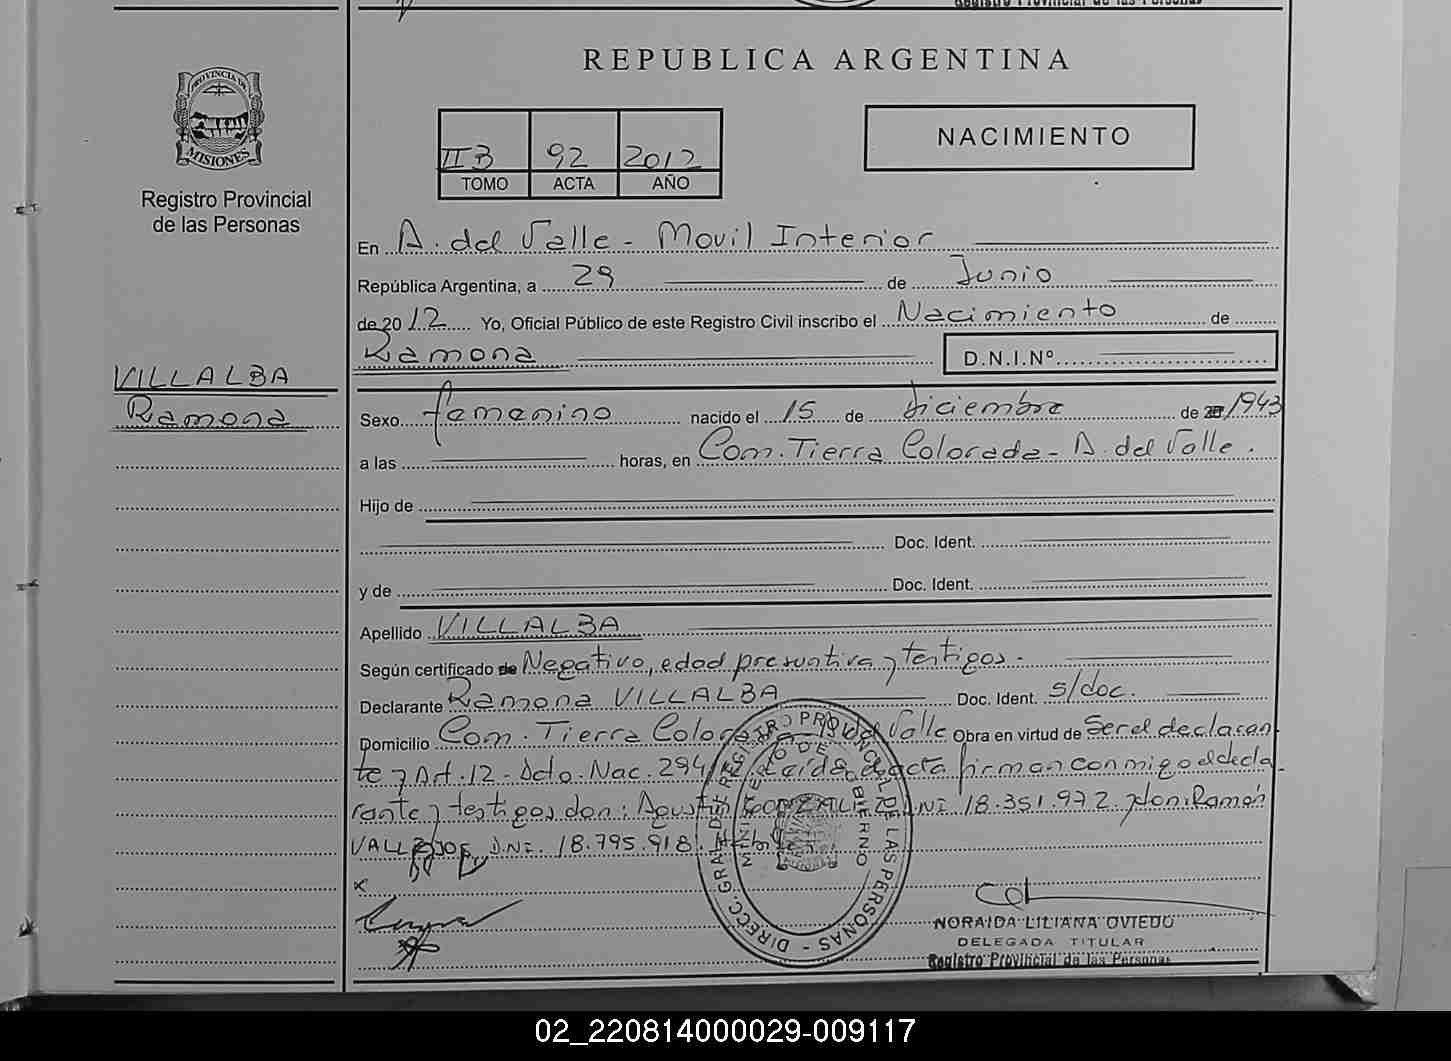 Registro Provincial de las Personas
REPUBLICA ARGENTINA
PROVINCIA DE
MISIONES
Registro Provincial
de las Personas
II B 92 2012
TOMO ACTA AÑO
NACIMIENTO
En A. del Valle - Movil Interior
República Argentina, a 29 de Junio
de 2012 Yo, Oficial Público de este Registro Civil inscribo el Nacimiento de
Ramona D.N.I.Nº
VILLALBA
Ramona
Sexo femenino nacido el 15 de diciembre de 1943
a las horas, en Com. Tierra Colorada - A. del Valle.
Hijo de
Doc. Ident.
y de Doc. Ident.
Apellido VILLALBA
Según certificado de Negativo, edad presuntiva y testigos.
Declarante Ramona VILLALBA Doc. Ident. s/doc.
Domicilio Com. Tierra Colorada del Valle Obra en virtud de Ser el declaran
te y Art. 12 - Dcto. Nac. 294 Leída acta firman conmigo el decla
rante y testigos don: Agustín GONZALEZ DNI 18.351.972 y don: Ramón
VALLEJOS DNI. 18.795.918.
x
DIRECC. GRAL. DEL REGISTRO PROVINCIAL DE LAS PERSONAS
MINISTERIO DE GOBIERNO
NORAIDA LILIANA OVIEDO
DELEGADA TITULAR
Registro Provincial de las Personas
02_220814000029-009117